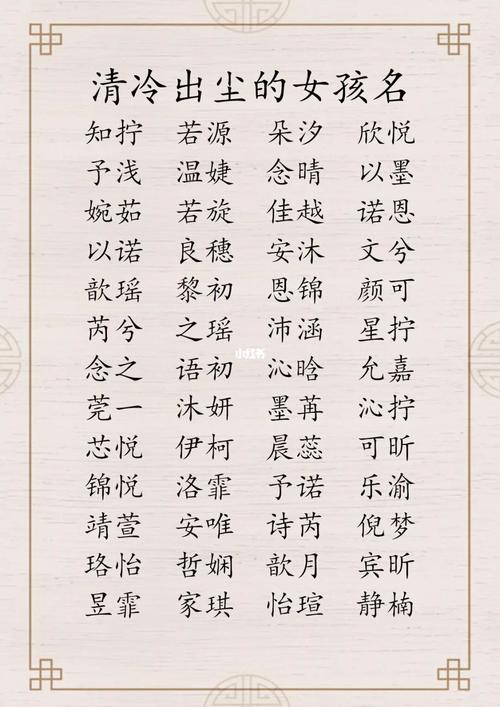 清冷出尘的女孩名
知拧 若源 朵汐 欣悦
予浅 温婕 念晴 以墨
婉茹 若旋 佳越 诺恩
以诺 良穗 安沐 文兮
歆瑶 黎初 恩锦 颜可
芮兮 之瑶 沛涵 星拧
念之 语初 沁晗 允嘉
莞一 沐妍 墨苒 沁拧
芯悦 伊柯 晨蕊 可昕
锦悦 洛霏 予诺 乐渝
靖萱 安唯 诗芮 倪梦
珞怡 哲娴 歆月 宾昕
昱霏 家琪 怡瑄 静楠
小红书